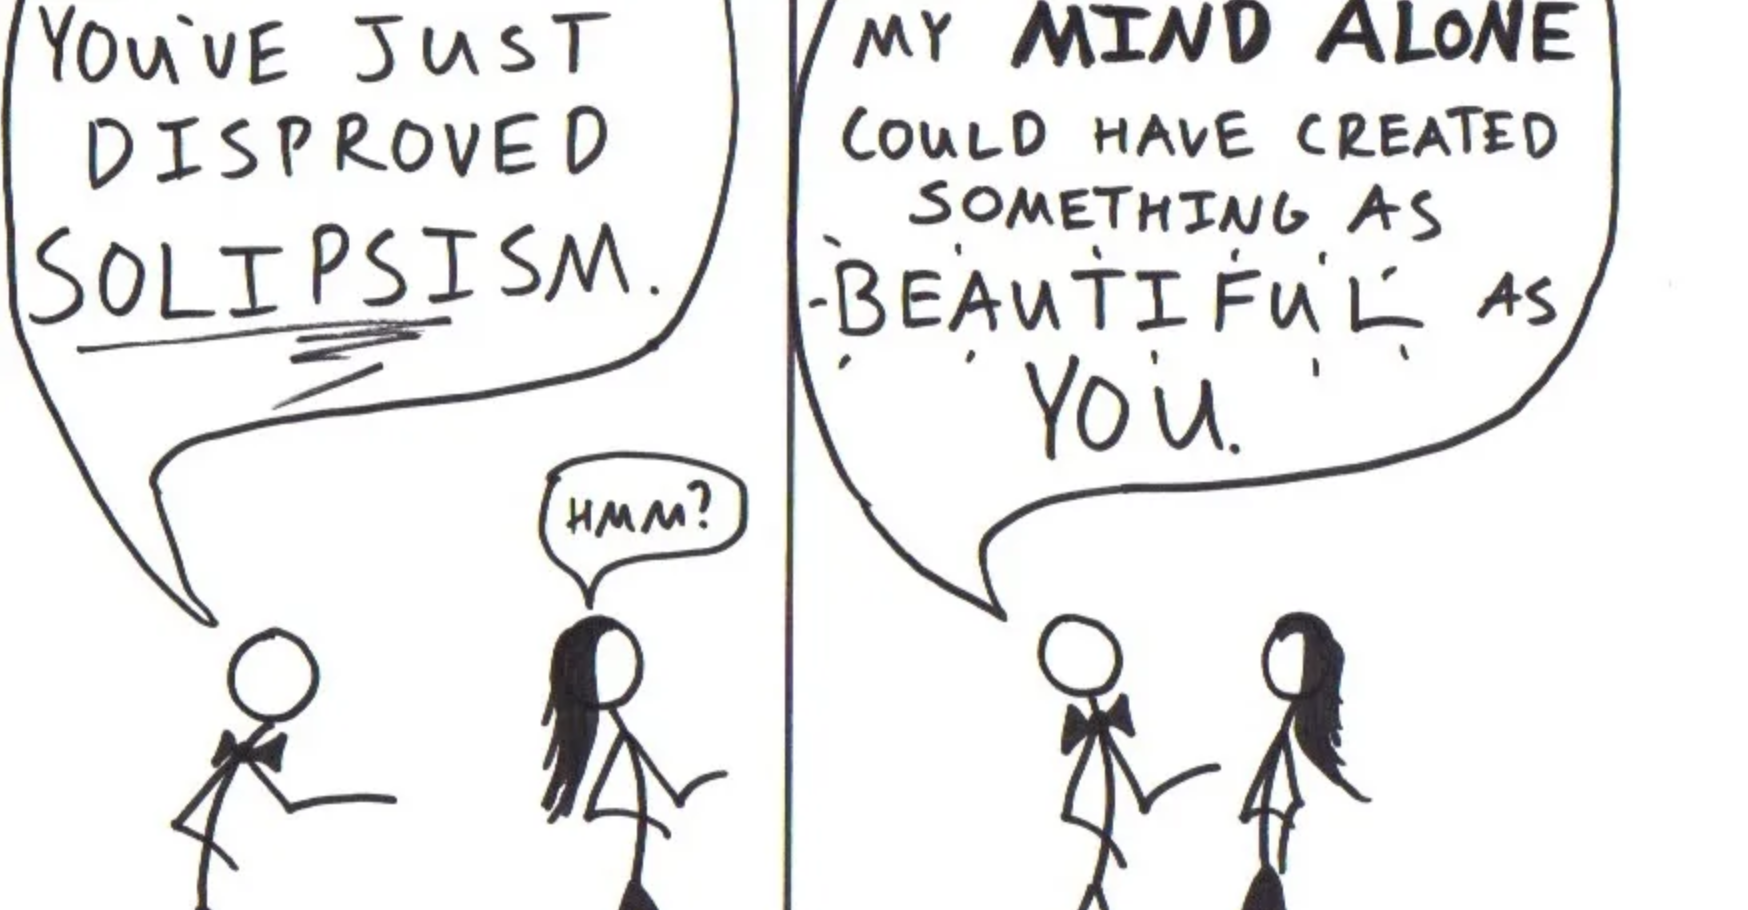 YOU'VE JUST
DISPROVED
SOLIPSISM.
HMM?
MY MIND ALONE
COULD HAVE CREATED
SOMETHING AS
BEAUTIFUL AS
YOU.